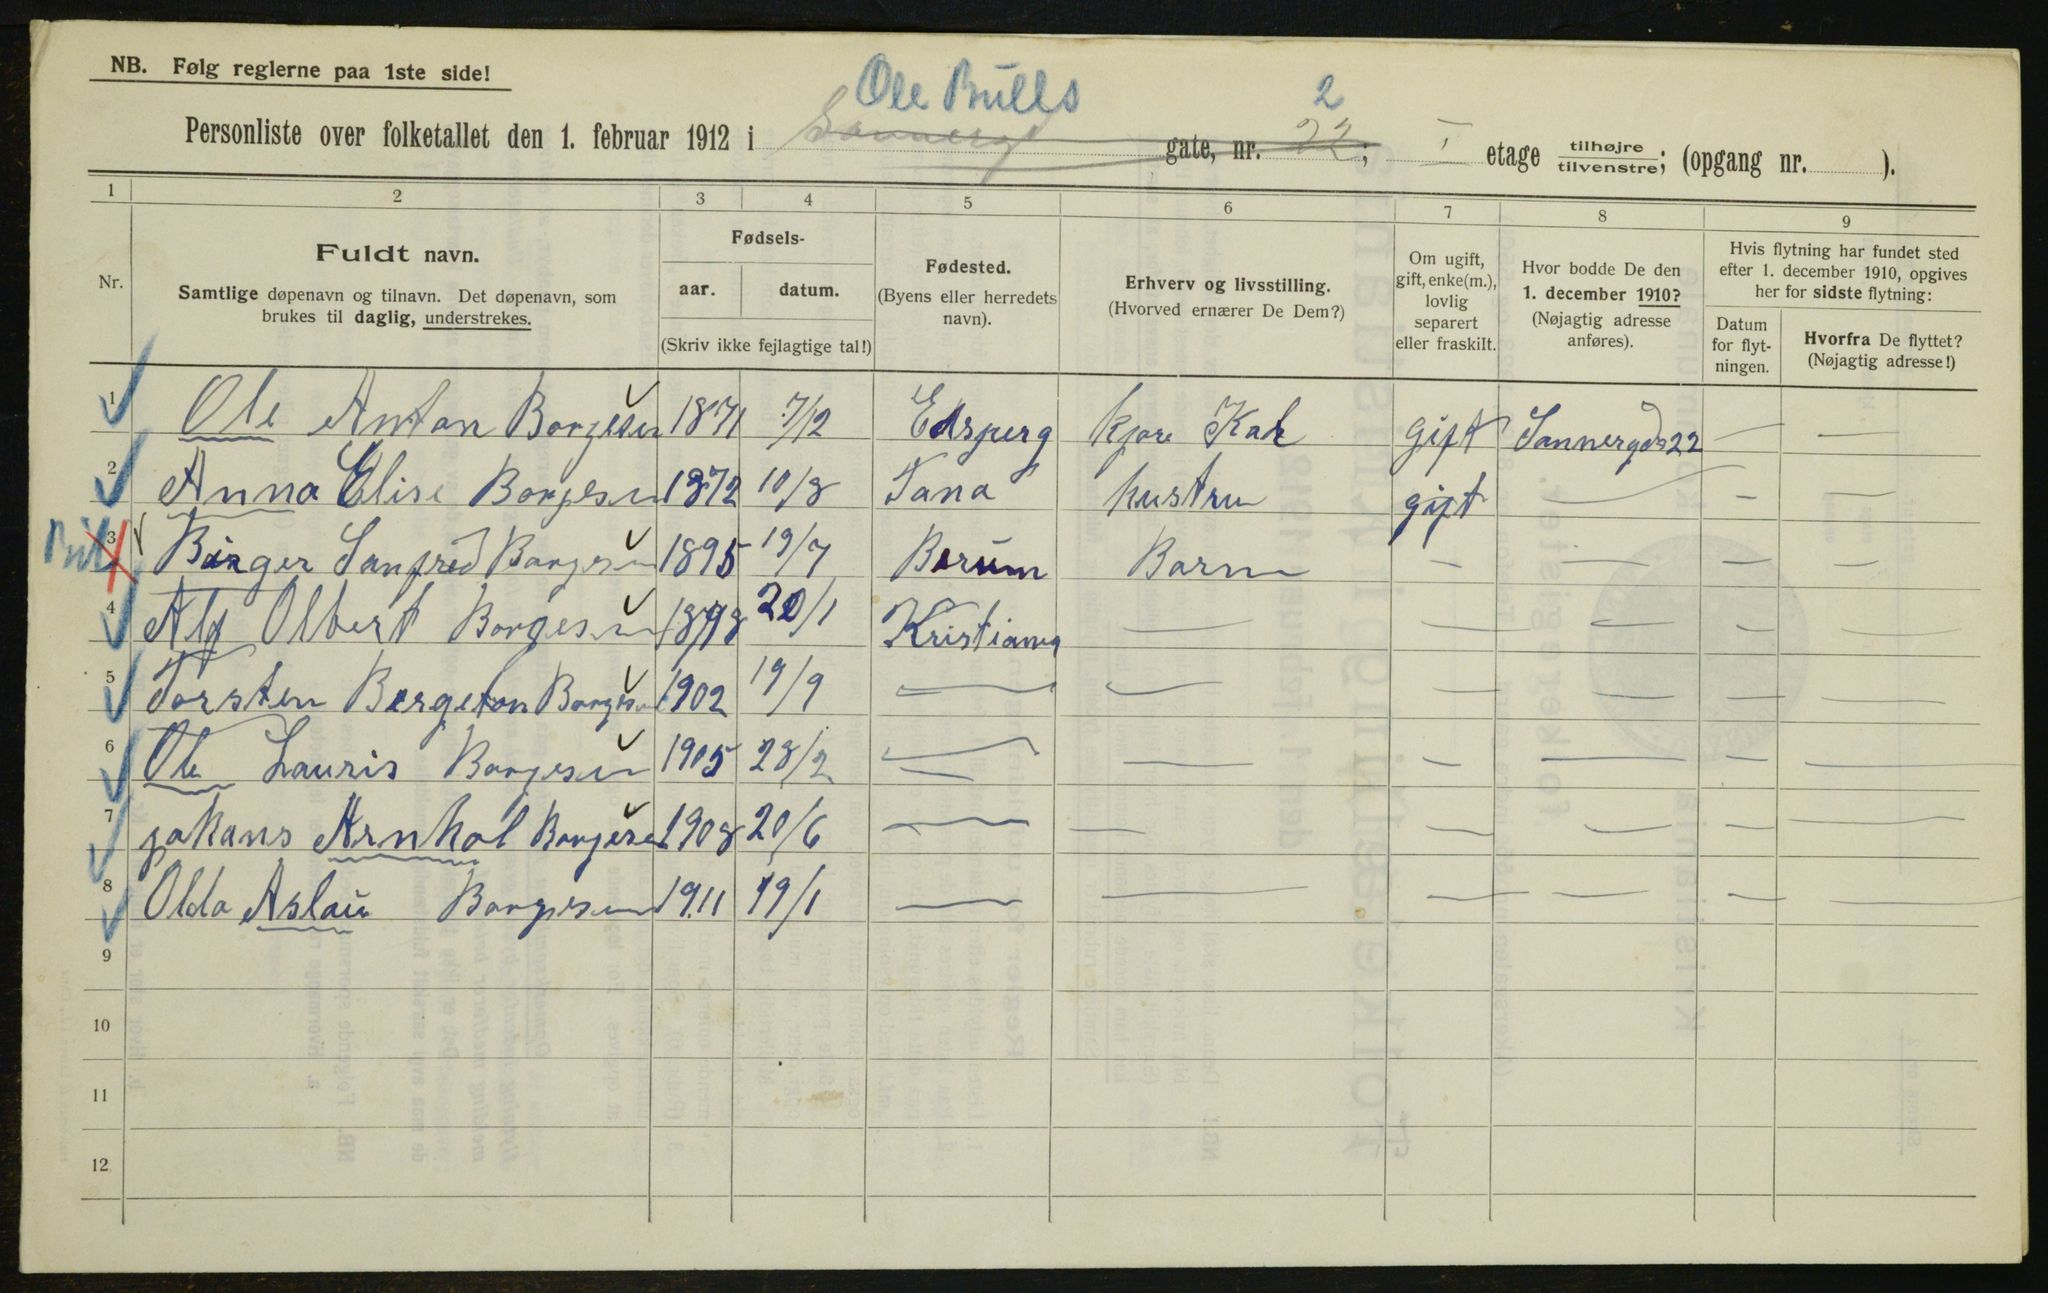 NB. Følg reglerne paa 1ste side!
Ole Bulls 2
Personliste over folketallet den 1. februar 1912 i Sannergd gate, nr. 22; I etage tilhøjre/tilvenstre; (opgang nr. ).
1 2 3 4 5 6 7 8 9
Nr.
Fuldt navn.
Samtlige døpenavn og tilnavn. Det døpenavn, som
brukes til daglig, understrekes.
Fødsels-
aar. datum.
(Skriv ikke fejlagtige tal!)
Fødested.
(Byens eller herredets
navn).
Erhverv og livsstilling.
(Hvorved ernærer De Dem?)
Om ugift,
gift, enke(m.),
lovlig
separert
eller fraskilt.
Hvor bodde De den
1. december 1910?
(Nøjagtig adresse
anføres).
Hvis flytning har fundet sted
efter 1. december 1910, opgives
her for sidste flytning:
Datum
for flyt-
ningen.
Hvorfra De flyttet?
(Nøjagtig adresse!)
1 Ole Anton Borgesen 1871 7/2 Edsperg kjøre Kar gift Sannergds 22 — —
2 Anna Elise Borgesen 1872 10/8 Tana hustru gift — — —
3 Birger Sanfred Borgesen 1895 19/7 Berum Barn — — — —
4 Alf Olbert Borgesen 1898 20/1 Kristiania — — — — —
5 Torsten Bergeton Borgesen 1902 19/9 — — — — — —
6 Ole Lauris Borgesen 1905 28/2 — — — — — —
7 johans Arnhol Borgesen 1908 20/6 — — — — — —
8 Olda Aslau Borgesen 1911 19/1 — — — — — —
9
10
11
12